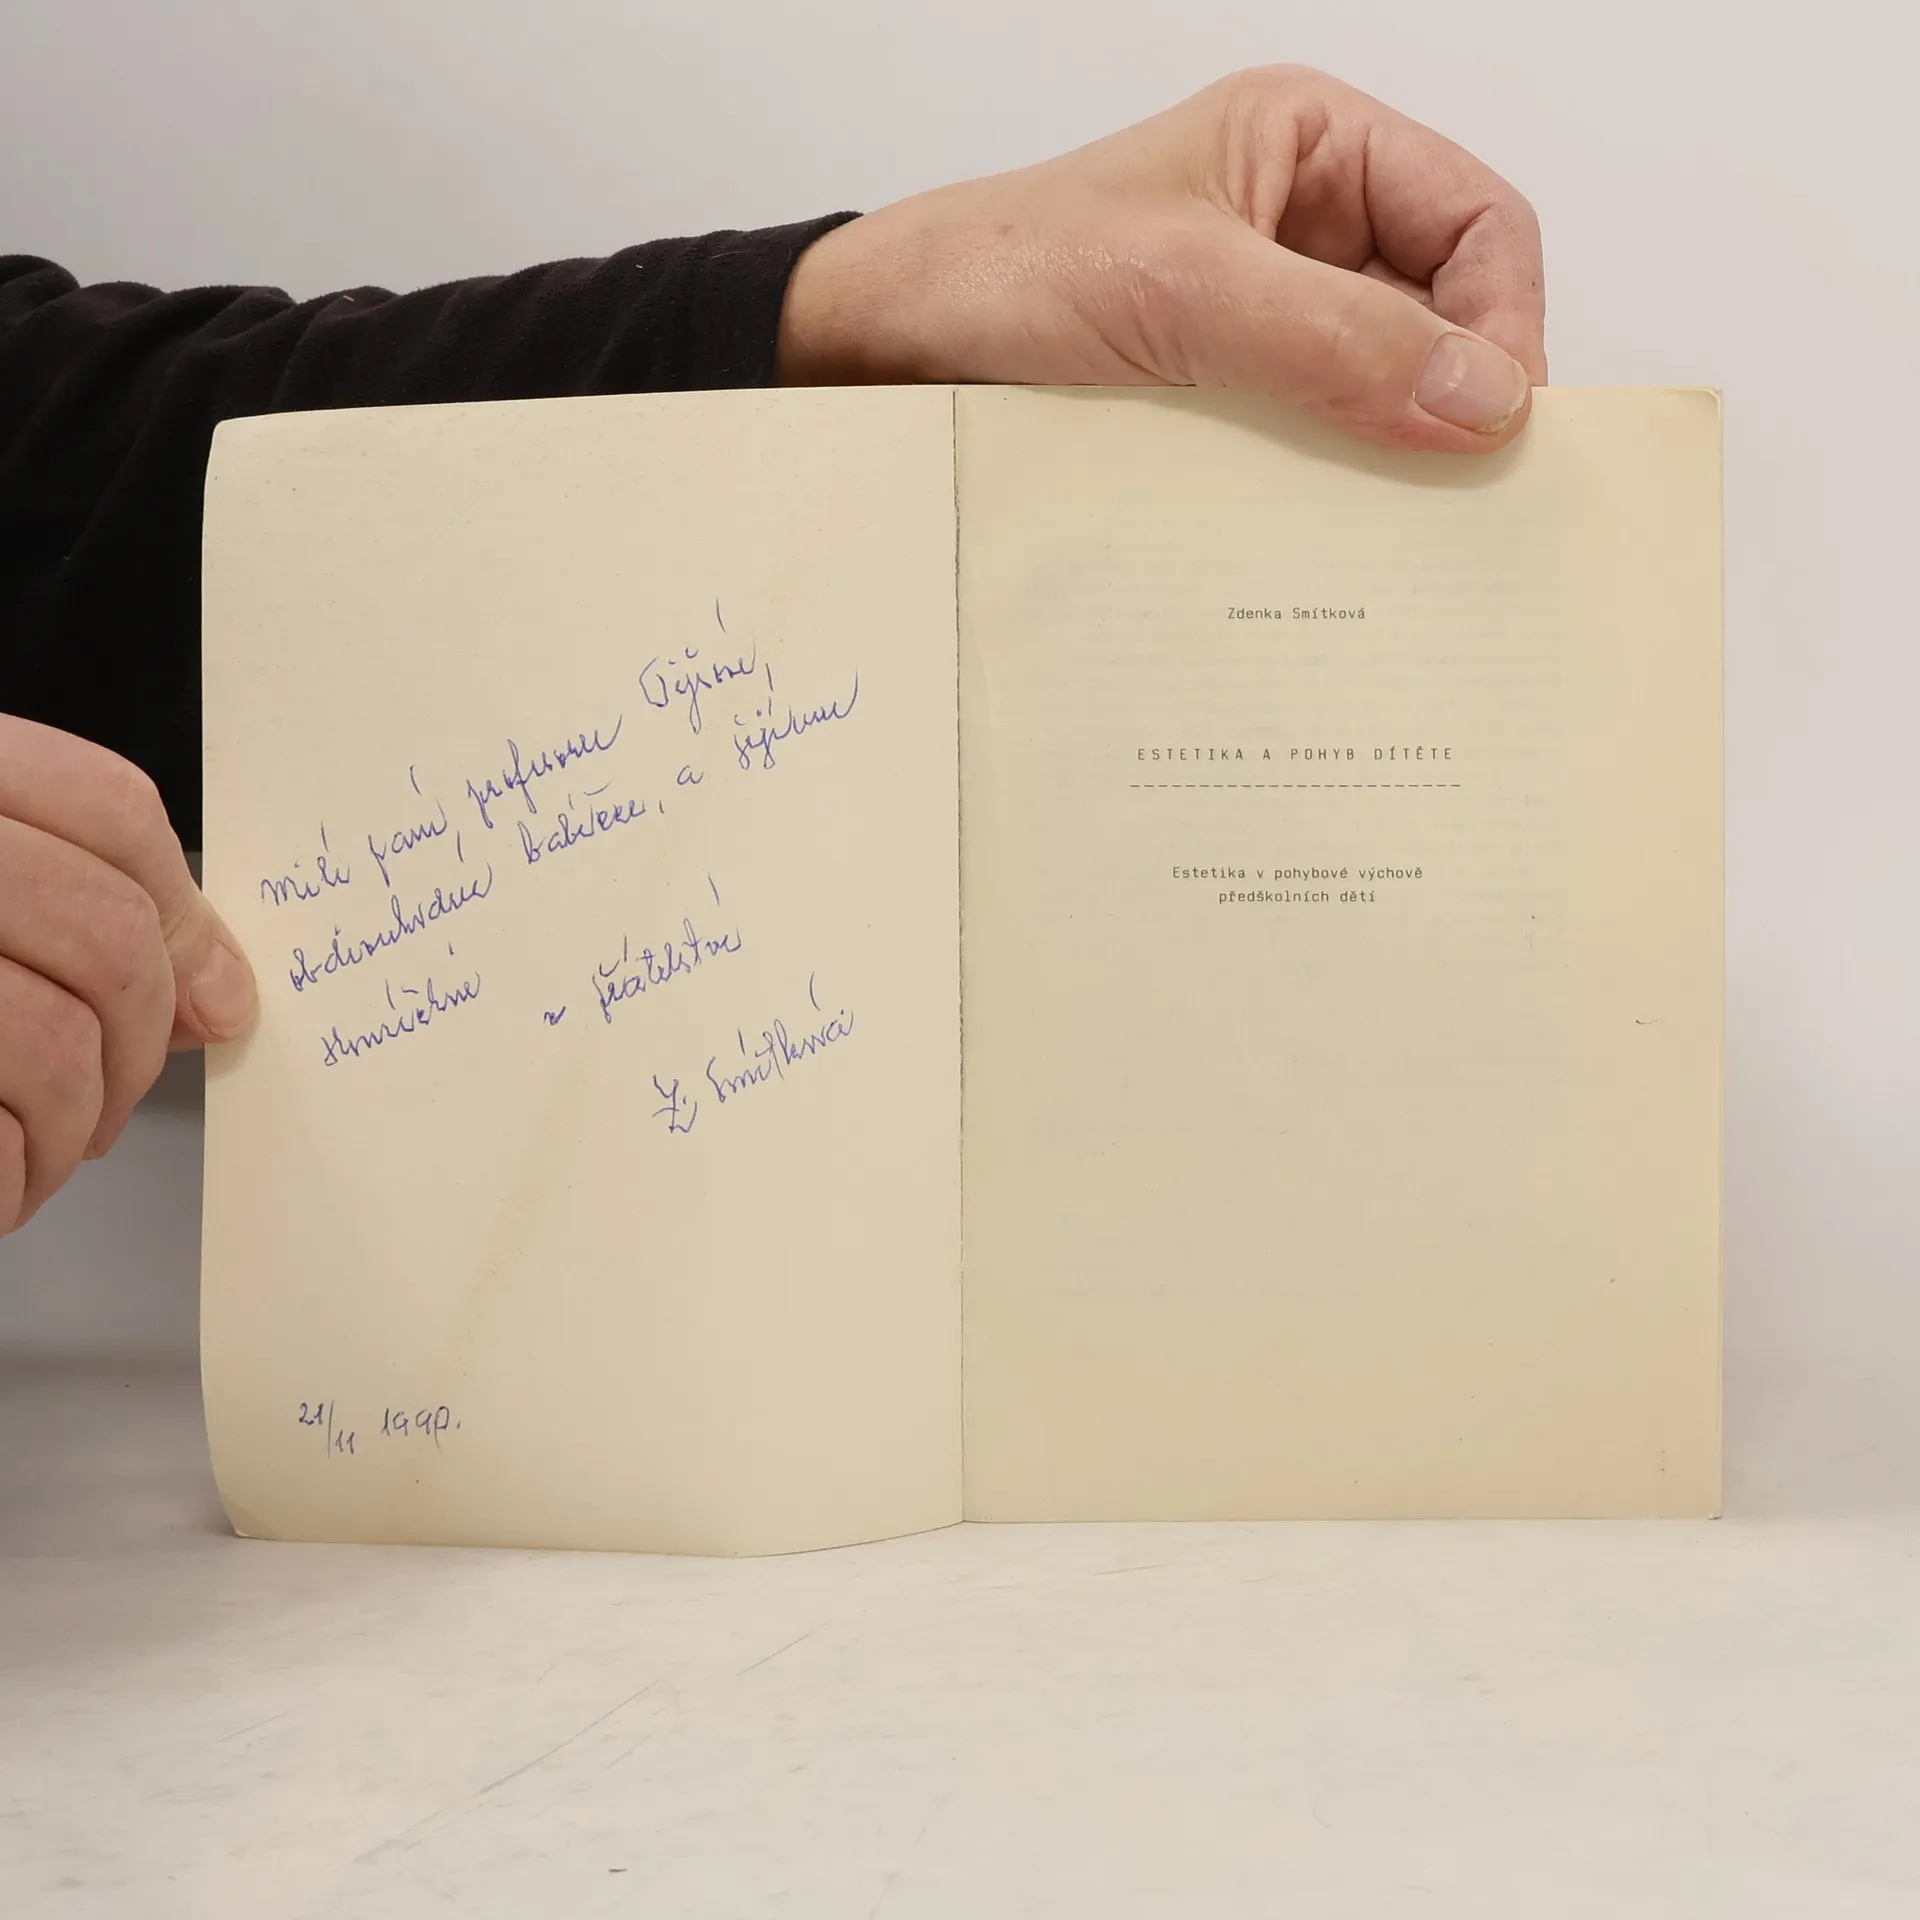 milé paní profesorce
obdivuhodné babičce, a
v přátelství
Z. Smítková
21/11 1990.
Zdenka Smítková
ESTETIKA A POHYB DÍTĚTE
Estetika v pohybové výchově
předškolních dětí